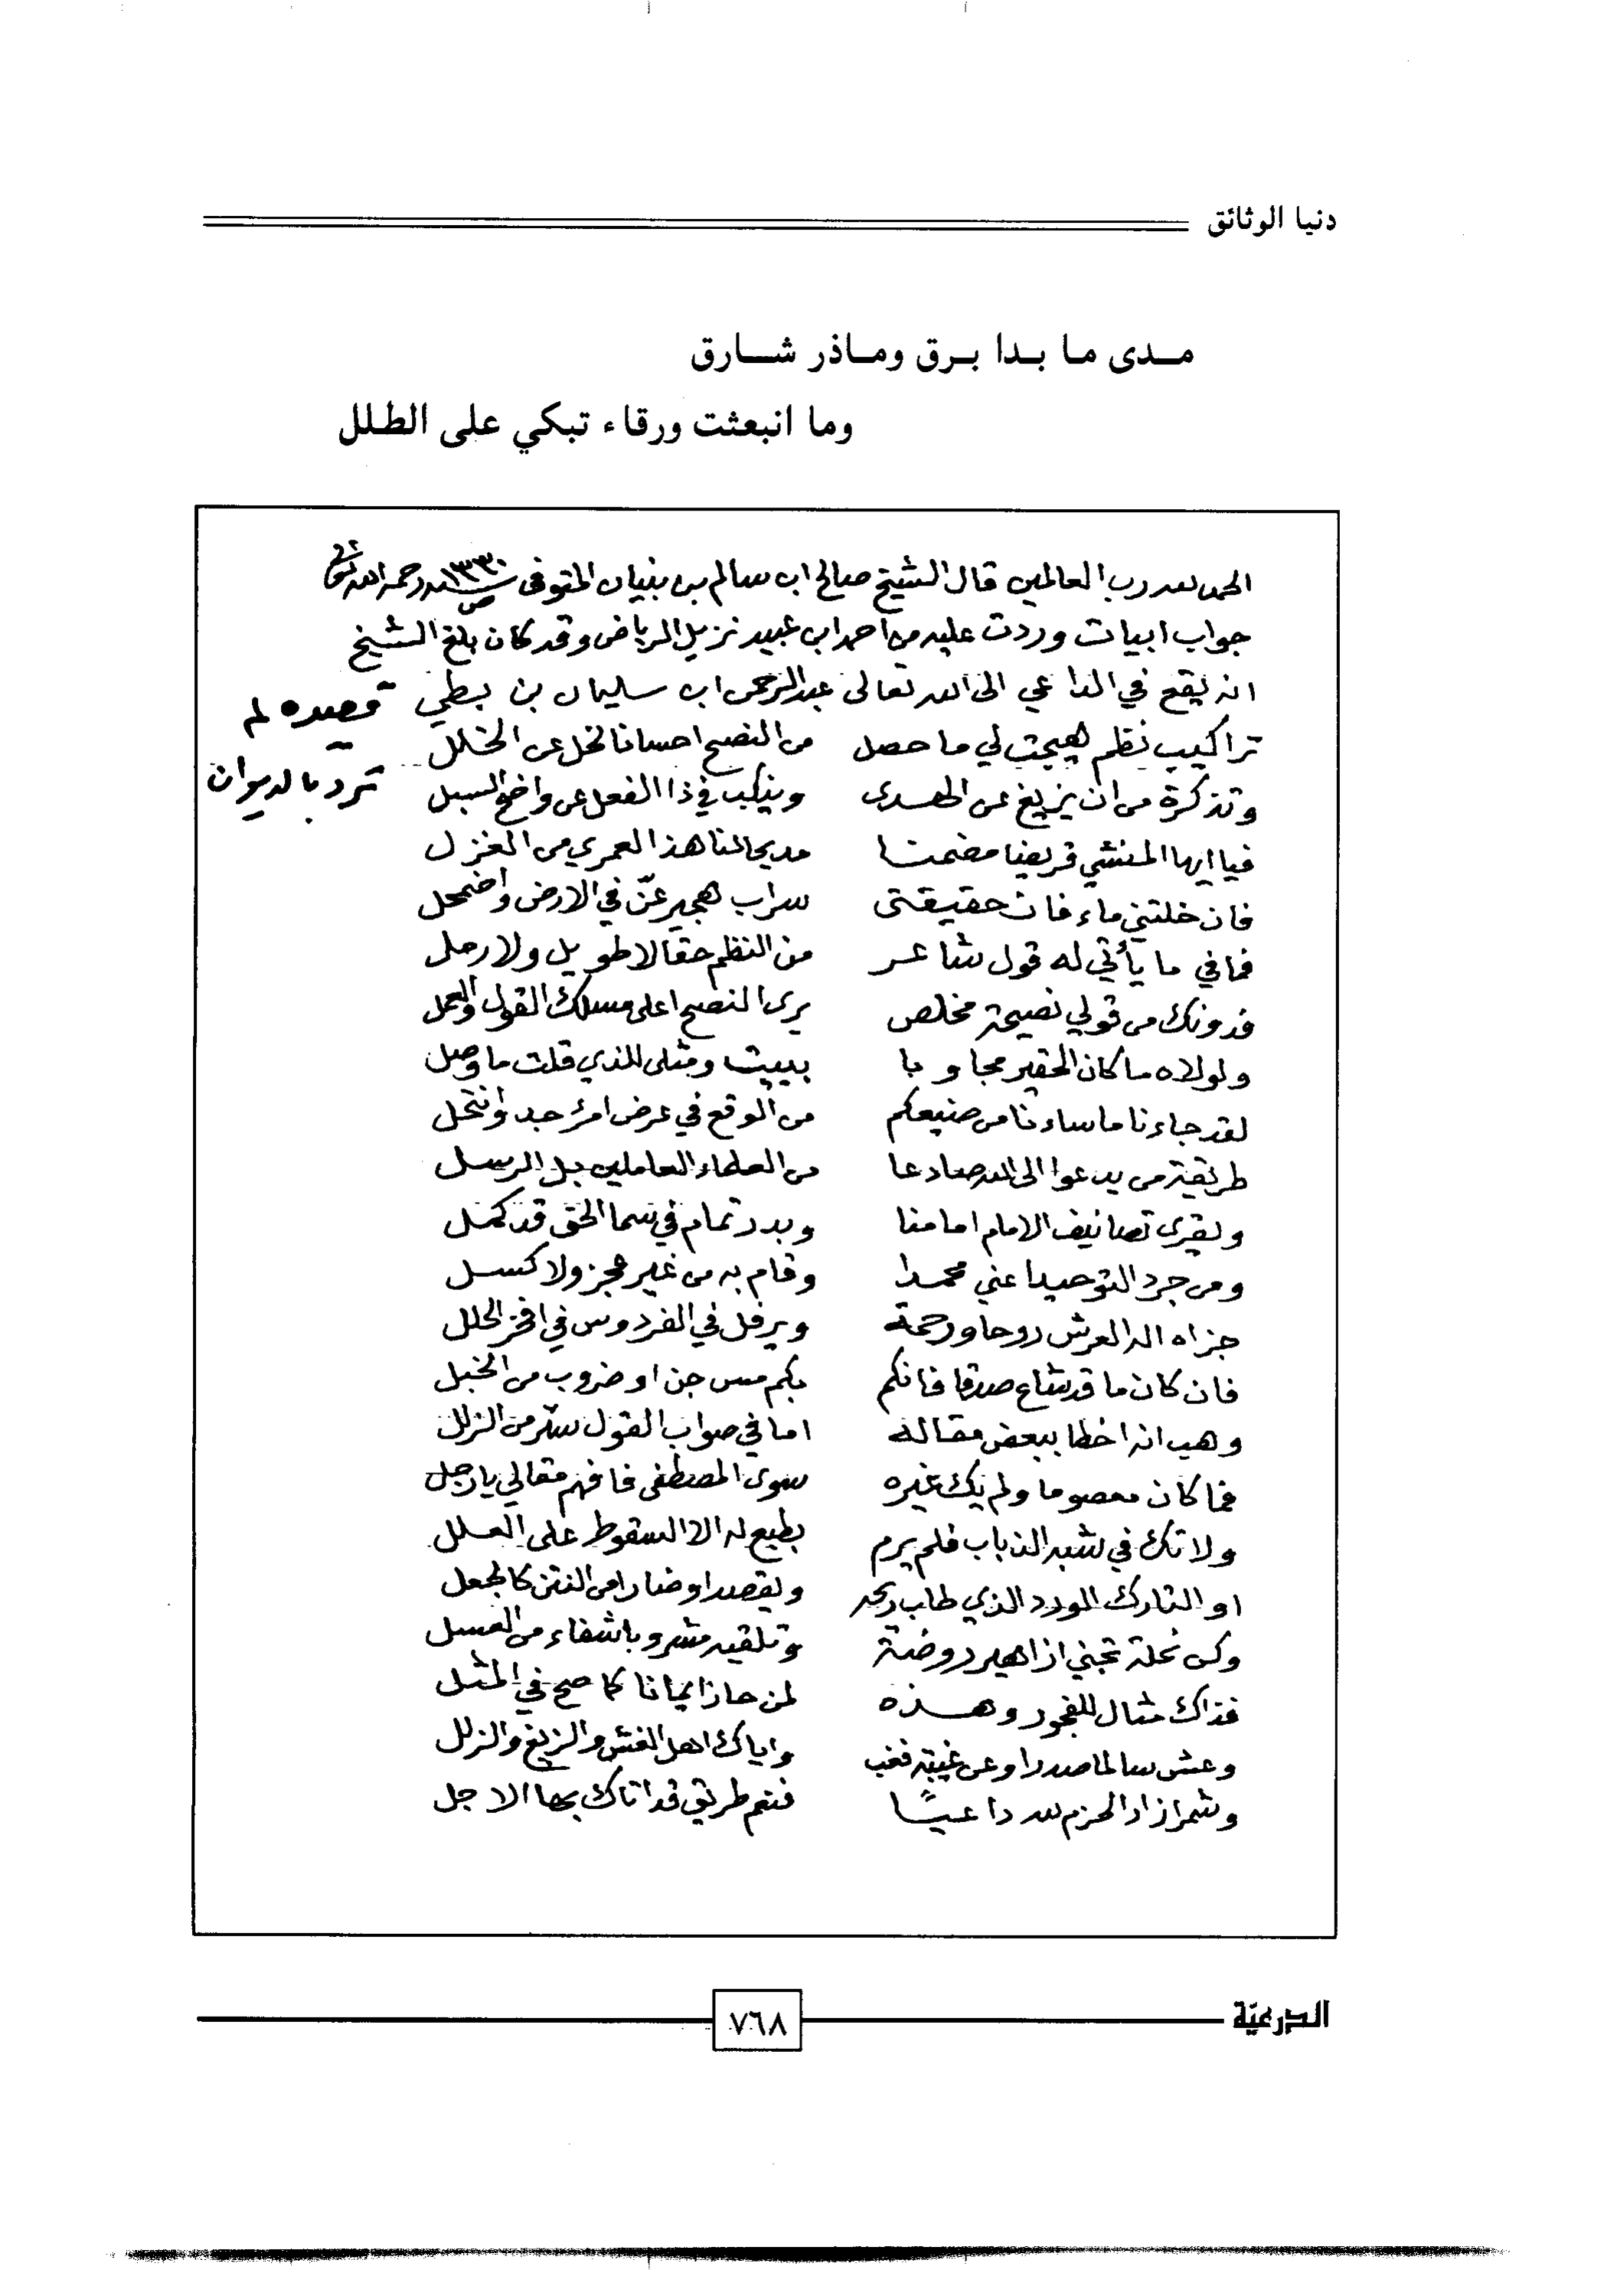 دنيا الوثائق
مـدى ما بـدا بـرق ومـاذر شـارق
وما انبعثت ورقاء تبكي على الطلل
الحمد لله رب العالمين قال الشيخ صالح ابن سالم بن بنيان المتوفى ١٣٣٠ رحمه الله
جواب ابيات وردت عليه من احمد ابن عبيد نزيل الرياض وقد كان بلغ الشيخ
انه يقع في الداعي الى الله تعالى عبد الرحمن ابن سليمان بن بطي
قصيده لم
ترد بالديوان
تراكيب نظم هيجت لي ما حصل من النصح احسانا لخل عن الخلل
وتذكرة من ان يزيغ عن الهدى وينكب في ذا الفعل عن واضح السبل
فيا ايها المنشي قريضا مضمنا مديحا لنا هذا العمري من الغزل
فان خلتني ماء فان حقيقتى سراب هجير عنّ في الارض واضمحل
فما في ما يأتي له قول شاعر من النظم حقا لا طويل ولا رمل
فدونك من قولي نصيحة مخلص يرى النصح اعلى مسلك القول والعمل
ولولاه ما كان الحقير مجاوبا ببيت ومثلى للذي قلت ما وصل
لقد جاءنا ما ساءنا من صنيعكم من الوقع في عرض امرئ جد وانتحل
طريقة من يدعوا الى الله صادعا من العلماء العاملين بل الرسل
ويقرى تصانيف الامام امامنا وبدر تمام في سما الحق قد كمل
ومن جرد التوحيد اعني محمدا وقام به من غير عجز ولا كسل
جزاه اله العرش روحا ورحمة ويرفل في الفردوس في افخر الحلل
فان كان ما قد شاع صدقا فانكم بكم مس جن او ضروب من الخبل
وهب انه اخطا ببعض مقاله اما في صواب القول ستر من الزلل
فما كان معصوما ولم يك غيره سوى المصطفى فافهم مقالي يا رجل
ولا تك في شبه الذباب فلم يرم بطبع له الا السقوط على العلل
او التارك الورد الذي طاب ريحه ويقصد اوضارا من النتن كالجعل
وكن نحلة تجني ازاهير روضة وتلقيه مشروبا شفاء من العسل
فذاك مثال للفجور وهذه لمن حاز ايمانا كما صح في المثل
وعش سالما صدرا وعن غيبة فغب واياك اهل الغش والزيغ والزلل
وشمر ازار الحزم لله داعيًا فنعم طريق قد اتاك بها الاجل
الدرعيّة
٧٦٨